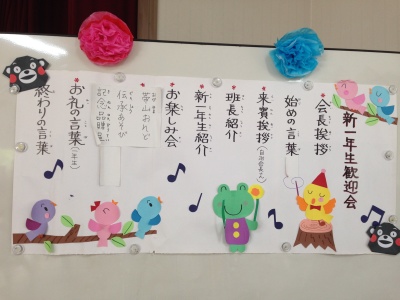 新一年生歓迎会
会長挨拶
始めの言葉
来賓挨拶(自治会長さん)
班長紹介
新一年生紹介
お楽しみ会
おんど
伝承あそび
記念品贈呈
お礼の言葉(一年生)
終わりの言葉